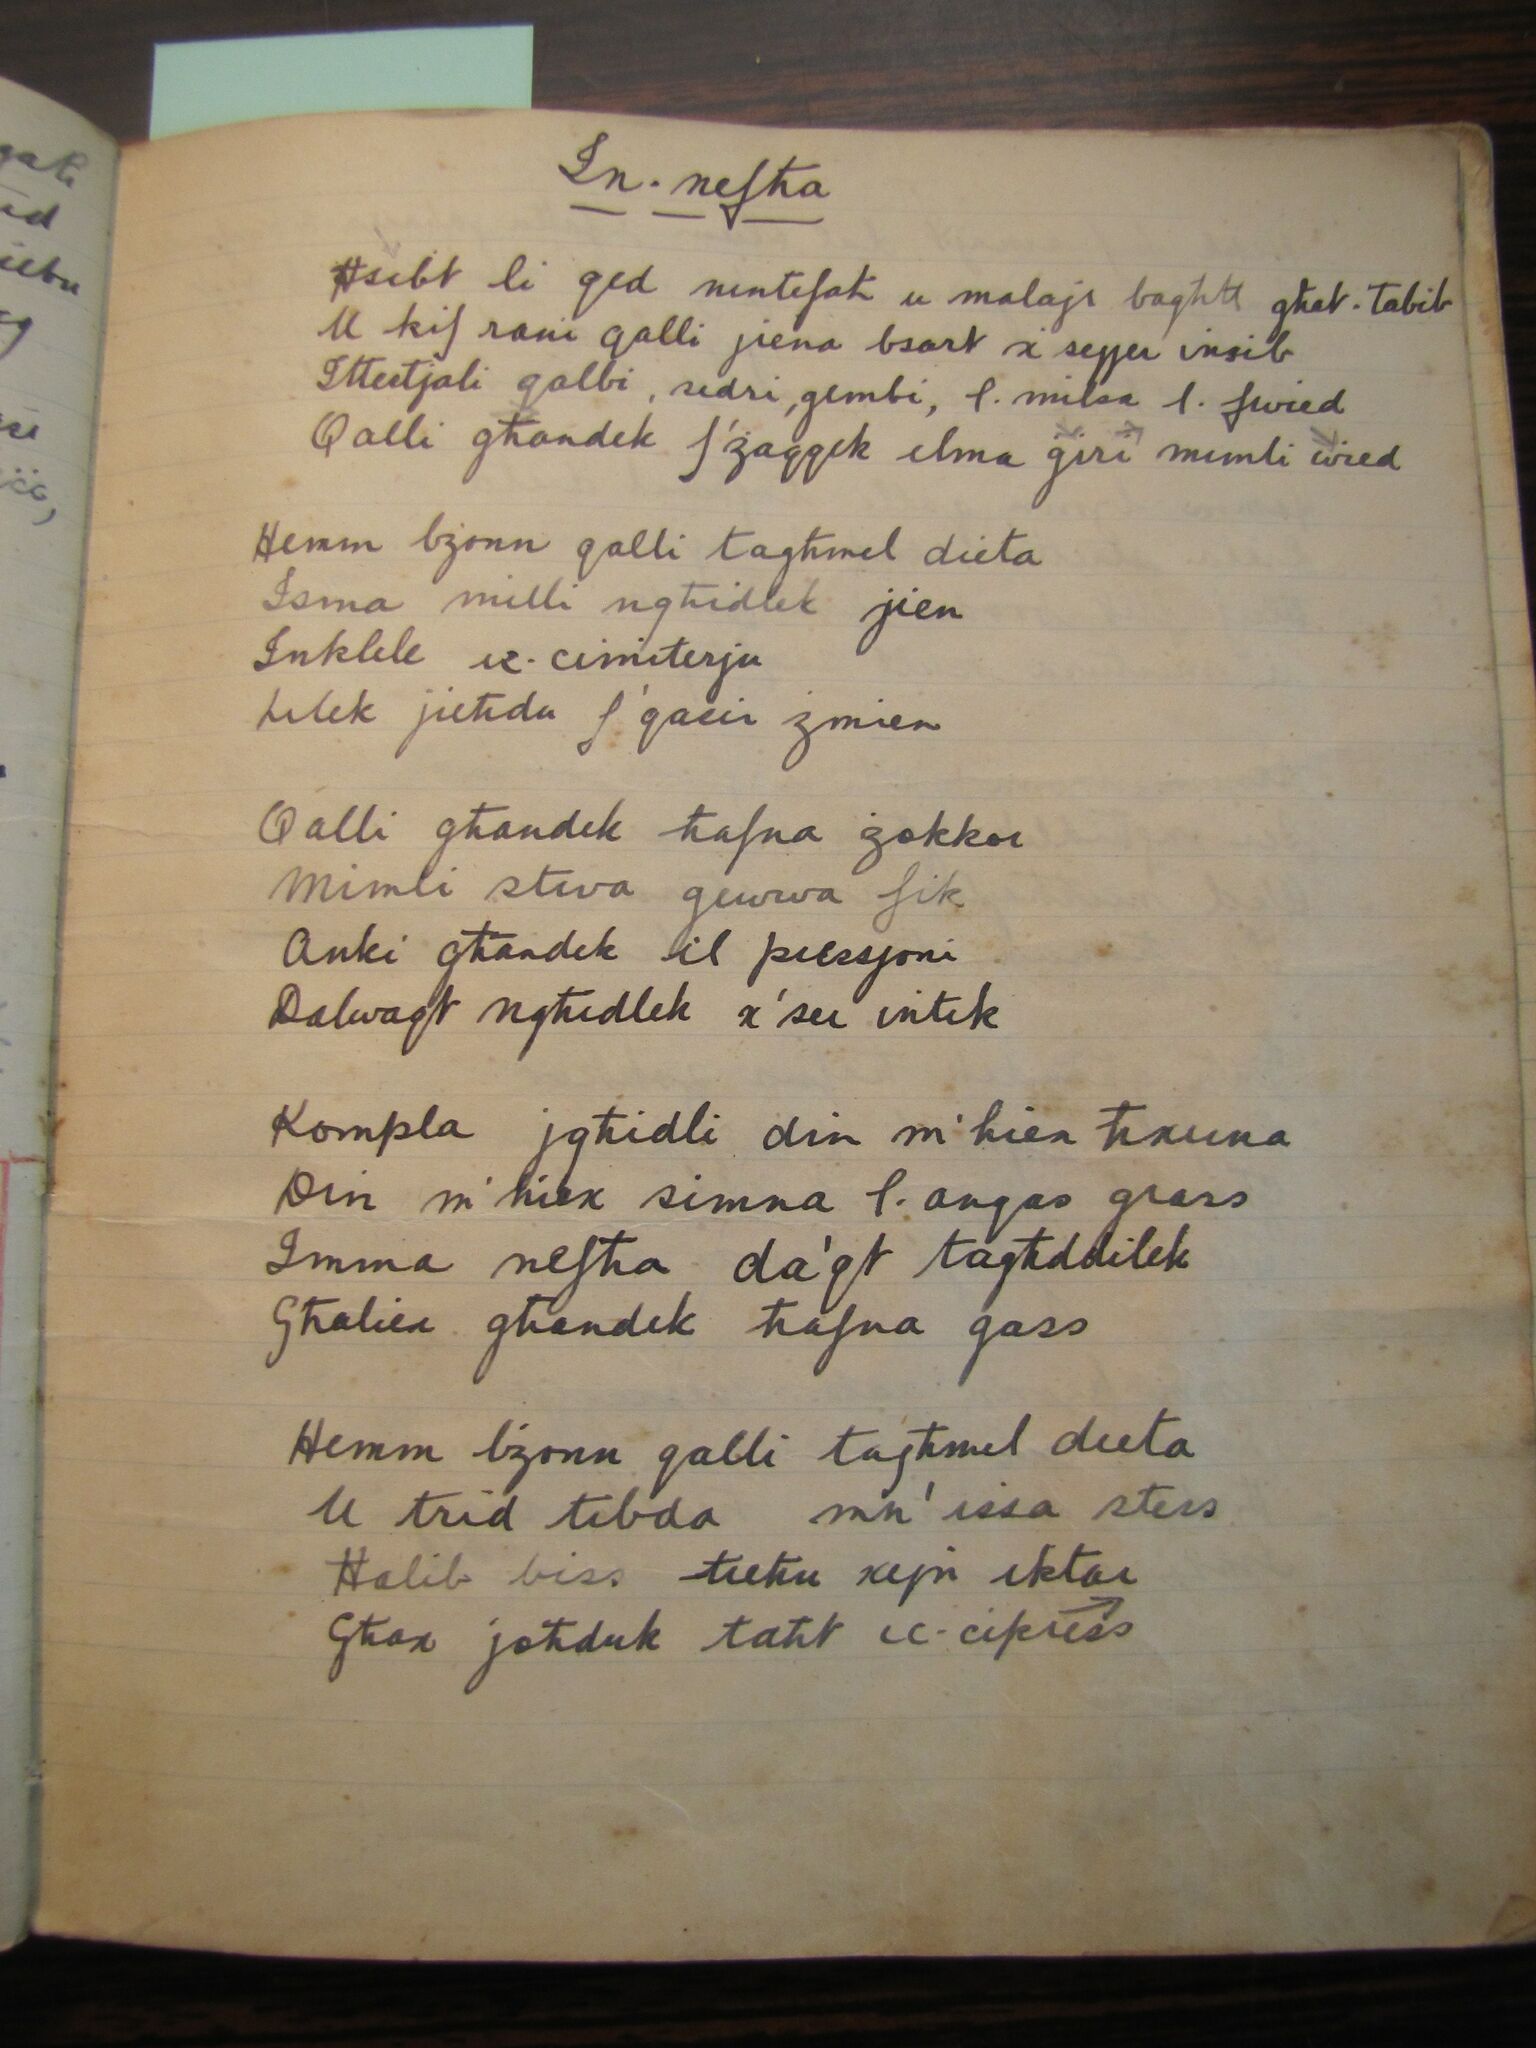 In-nefħa
Ħsibt li qed nintefaħ u malajr bagħtt għat-tabib
U kif rani qalli jiena bsart x'sejjer insib
Ittestjali qalbi, sidri, ġembi, l-milsa l-fwied
Qalli għandek f'żaqqek ilma ġiri mimli wied
Hemm bżonn qalli tagħmel dieta
Isma milli ngħidlek jien
Inklele ic-cimiterju
Lilek jieħdu f'qasir żmien
Qalli għandek ħafna zokkor
Mimli stiva ġewwa fik
Anki għandek il pressjoni
Dalwaqt ngħidlek x'ser intik
Kompla jgħidli din m'hiex ħxuna
Din m'hiex simna l-anqas grass
Imma nefħa da'qt tagħddilek
Għaliex għandek ħafna gass
Hemm bżonn qalli tagħmel dieta
U trid tibda min'issa stess
Ħalib biss tieħu xejn iktar
Għax joħduk taħt ic-cipress